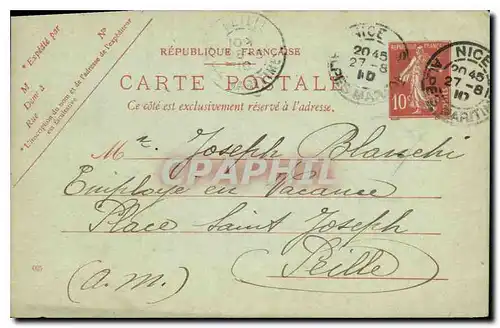 * Expédié par
N°
M
Dom.t à
Rue
* L'inscription du nom et de l'adresse de l'expéditeur
est facultative.
RÉPUBLIQUE FRANÇAISE
CARTE POSTALE
Ce côté est exclusivement réservé à l'adresse.
NICE
20 45
27-8
10
ALPES MARITIMES
NICE
20 45
27-8
10
10c
Mr. Joseph Blanchi
Employé en Vacance
Place Saint Joseph
Peille
(A.M.)
CPAPHIL